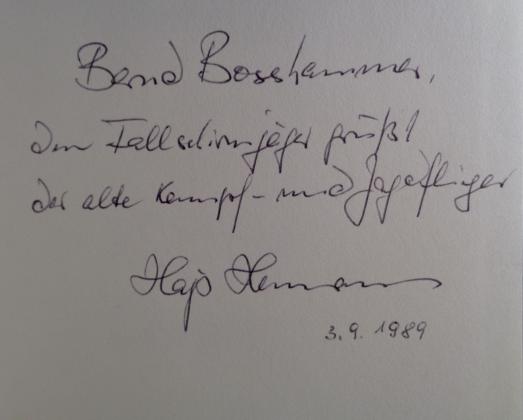 Bernd Bosshammer,
den Fallschirmjäger grüßt
der alte Kampf- und Jagdflieger
Hajo Herrmann
3.9.1989